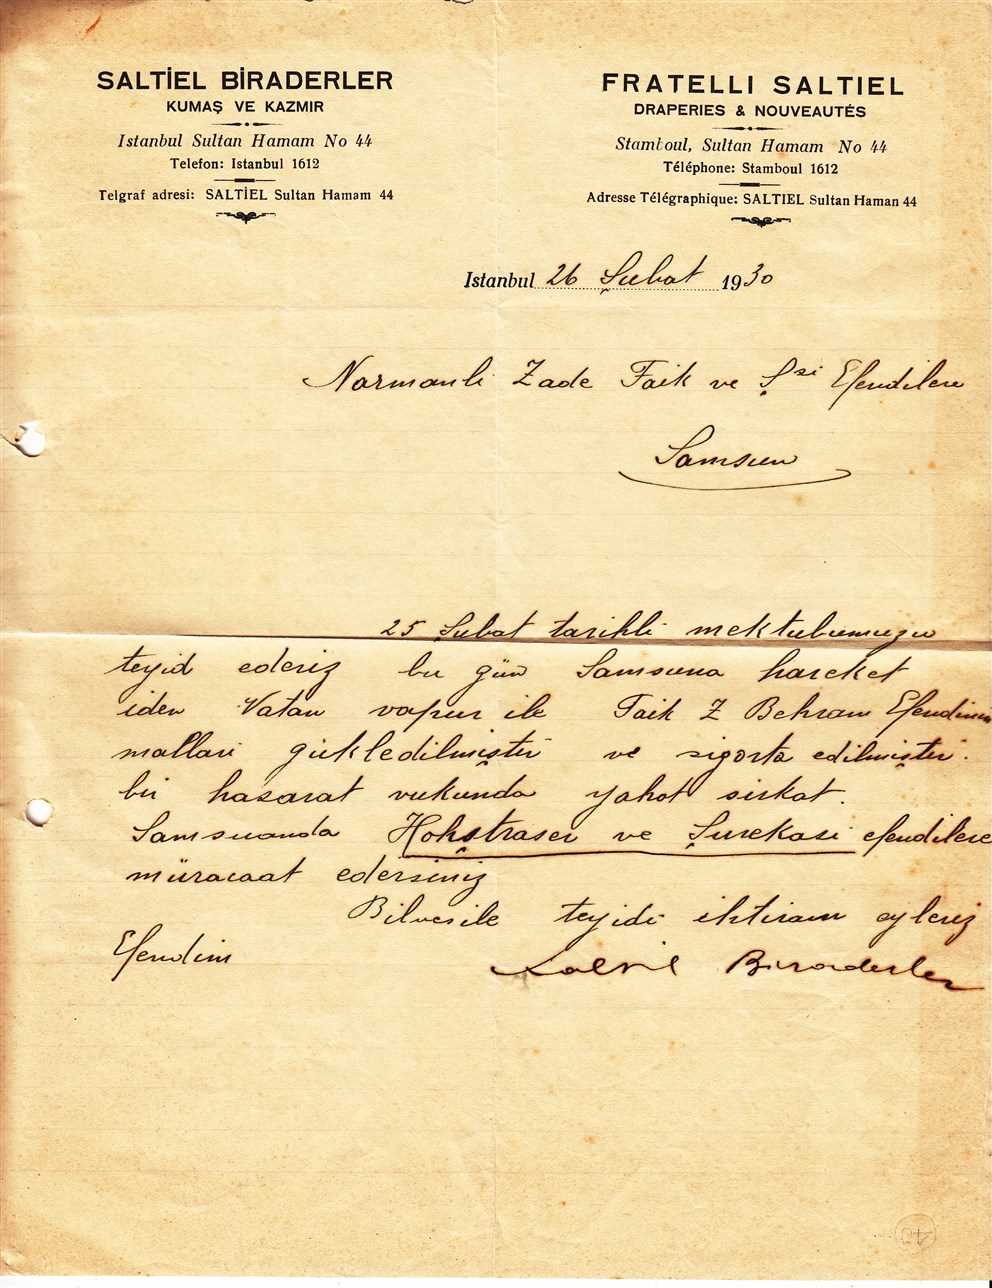 SALTİEL BİRADERLER
KUMAŞ VE KAZMIR
Istanbul Sultan Hamam No 44
Telefon: Istanbul 1612
Telgraf adresi: SALTİEL Sultan Hamam 44
FRATELLI SALTIEL
DRAPERIES & NOUVEAUTÉS
Stamboul, Sultan Hamam No 44
Téléphone: Stamboul 1612
Adresse Télégraphique: SALTIEL Sultan Haman 44
Istanbul 26 Şubat 1930
Normanli Zade Faik ve Şsi Efendilere
Samsun
25 Şubat tarihli mektubumuzu
teyid ederiz bu gün Samsuna hareket
iden Vatan vapur ile Faik Z Behram Efendinin
mallari yükledilmiştir ve sigorta edilmiştir.
bir hasarat vukunda yahot sirkat.
Samsuanda Hohştraser ve Şurekasi efendilere
müracaat edersiniz
Bilvesile teyidi ihtiram eyleriz
Efendim
Saltiel Biraderler